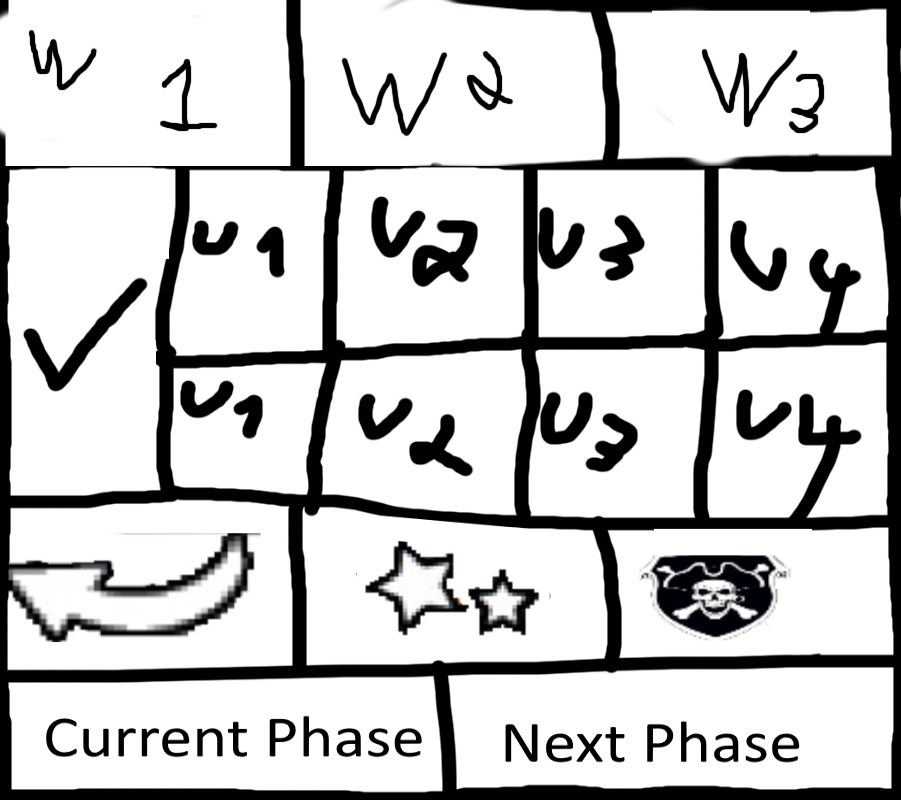 W 1 W2 W3
U1 U2 U3 U4
U1 U2 U3 U4
Current Phase Next Phase